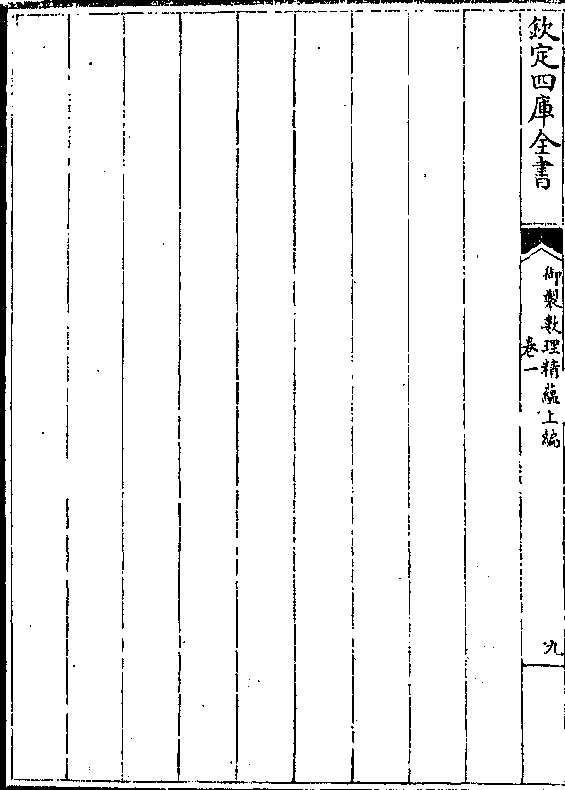 欽定四庫全書
御製數理精蘊上編
卷一
九